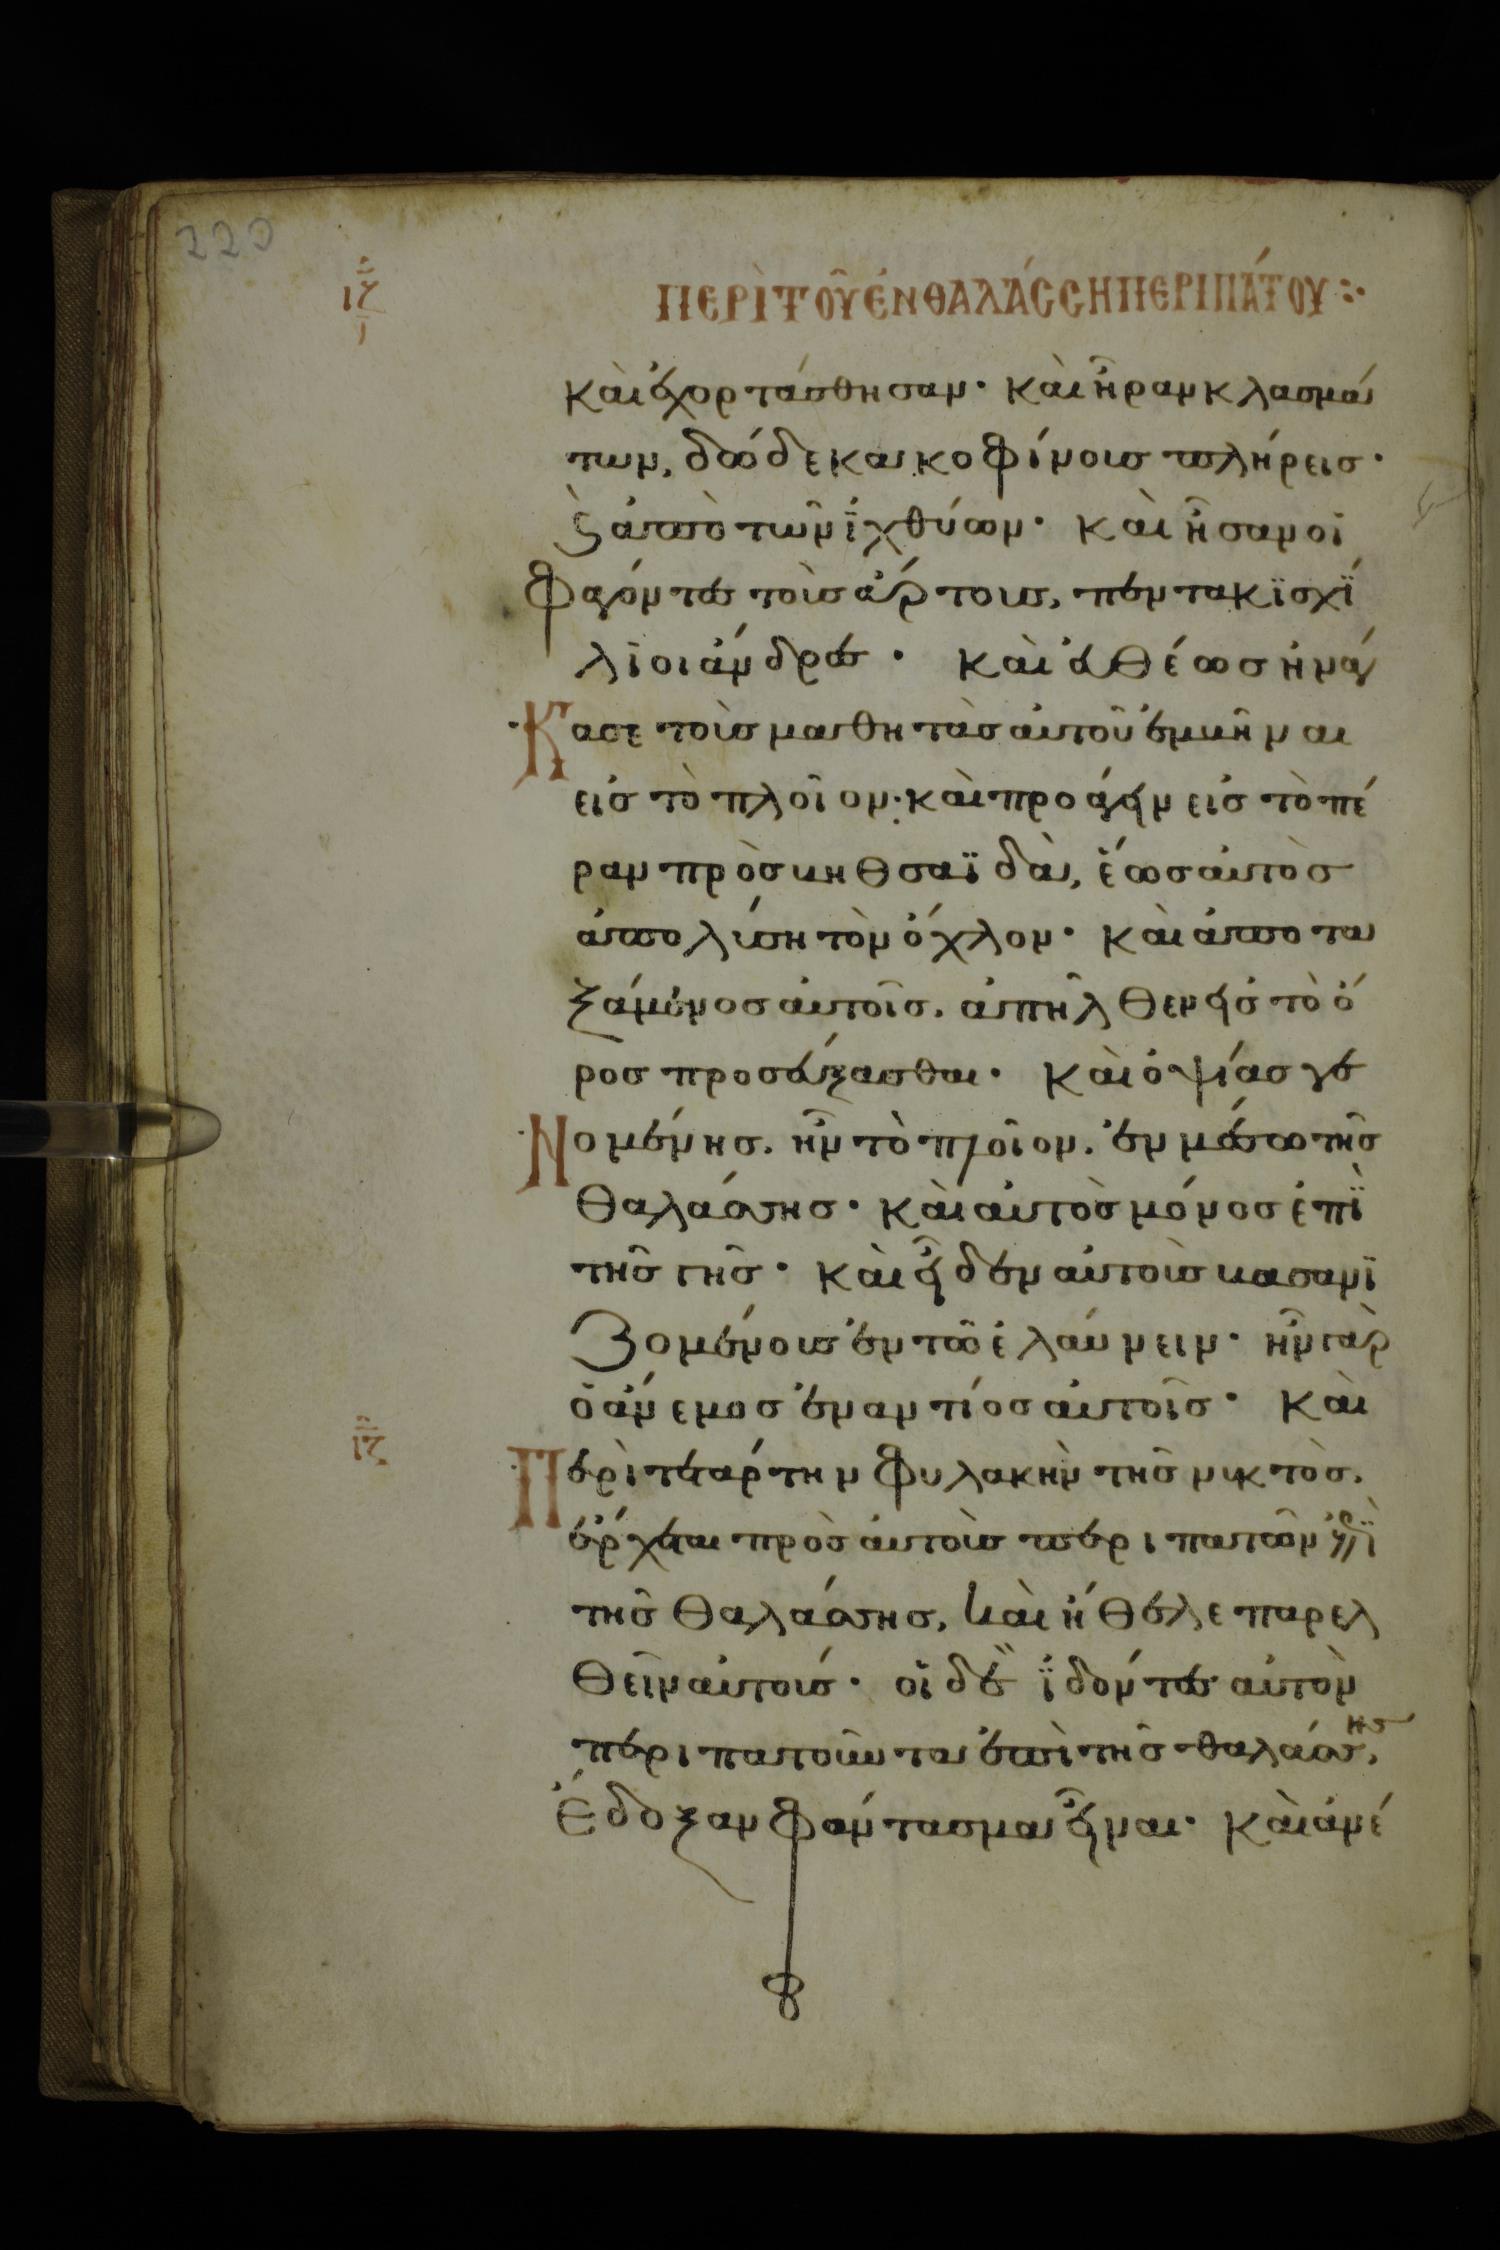 220
ιζ
ΠΕΡῚ ΤΟΥ͂ ἘΝ ΘΑΛΆΣΣΗ ΠΕΡΙΠΆΤΟΥ :·
καὶ ἐχορτάσθησαν· καὶ ἦραν κλασμά
των, δώδεκα κοφίνους πλήρεις·
ϛ ἀπὸ τῶν ἰχθύων· καὶ ἦσαν οἱ
φαγόντες τοὺς ἄρτους, πεντακϊσχί
λϊοι ἄνδρες· καὶ εὐθέως ἠνάγ
κασε τοὺς μαθητὰς αὐτοῦ ἐμβῆναι
εἰς τὸ πλοῖον· καὶ προάγειν εἰς τὸ πέ
ραν πρὸς βηθσαϊδὰ, ἕως αὐτὸς
ἀπολύση τὸν ὄχλον· καὶ ἀποτα
ξάμενος αὐτοῖς. ἀπῆλθεν εἰς τὸ ὄ
ρος προσεύξασθαι· καὶ ὀψίας γε
νομένης. ἦν τὸ πλοῖον. ἐν μέσω τῆς
θαλάσσης· καὶ αὐτὸς μόνος ἐπϊ
τῆς γῆς· καὶ εἶδεν αὐτοὺς βασανϊ
ζομένους ἐν τῶ ἐλαύνειν· ἦν γὰρ
ὁ ἄνεμος ἐναντίος αὐτοῖς· καὶ
ιζ
περὶ τετάρτην φυλακὴν τῆς νυκτὸς.
ἔρχεται πρὸς αὐτοὺς περιπατῶν ἐπϊ
τῆς θαλάσσης, καὶ ἤθελε παρελ
θεῖν αὐτούς· οἱ δὲ ἰδόντες αὐτὸν
περιπατοῦντα ἐπὶ τῆς θαλάσσης,
ἔδοξαν φάντασμα εἶναι· καὶ ἀνέ